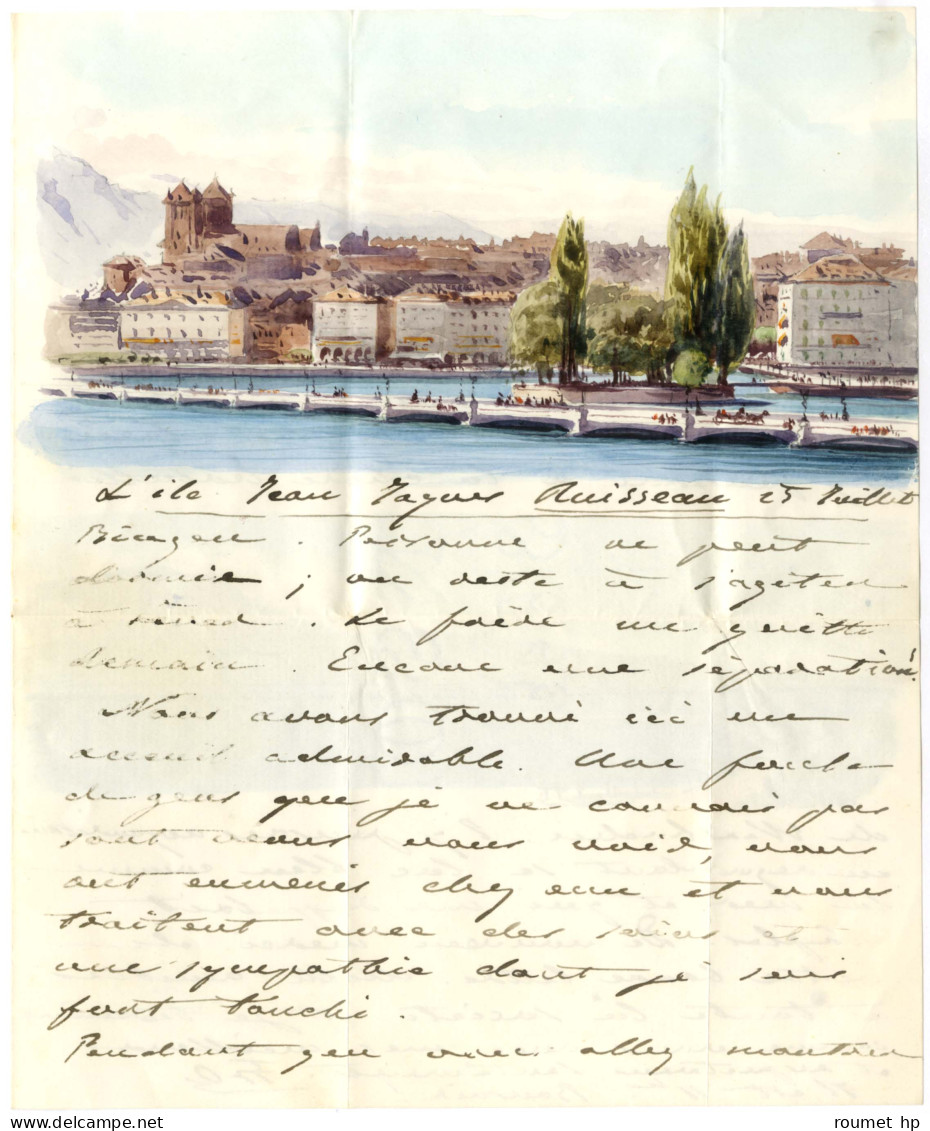 L'ile Jean Jaques Ruisseau 25 Juillet
Personne ne peut
dormir ; on reste à s'agiter
à . Le frère me quitte
demain . Encore une séparation!
Nous avons trouvé ici un
accueil admirable. Une foule
de gens que je ne connais pas
sont venus nous voir, nous
ont emmenés chez eux et nous
traitent avec des soins et
une sympathie dont je suis
fort touché .
Pendant que vous allez montrer
roumet hp